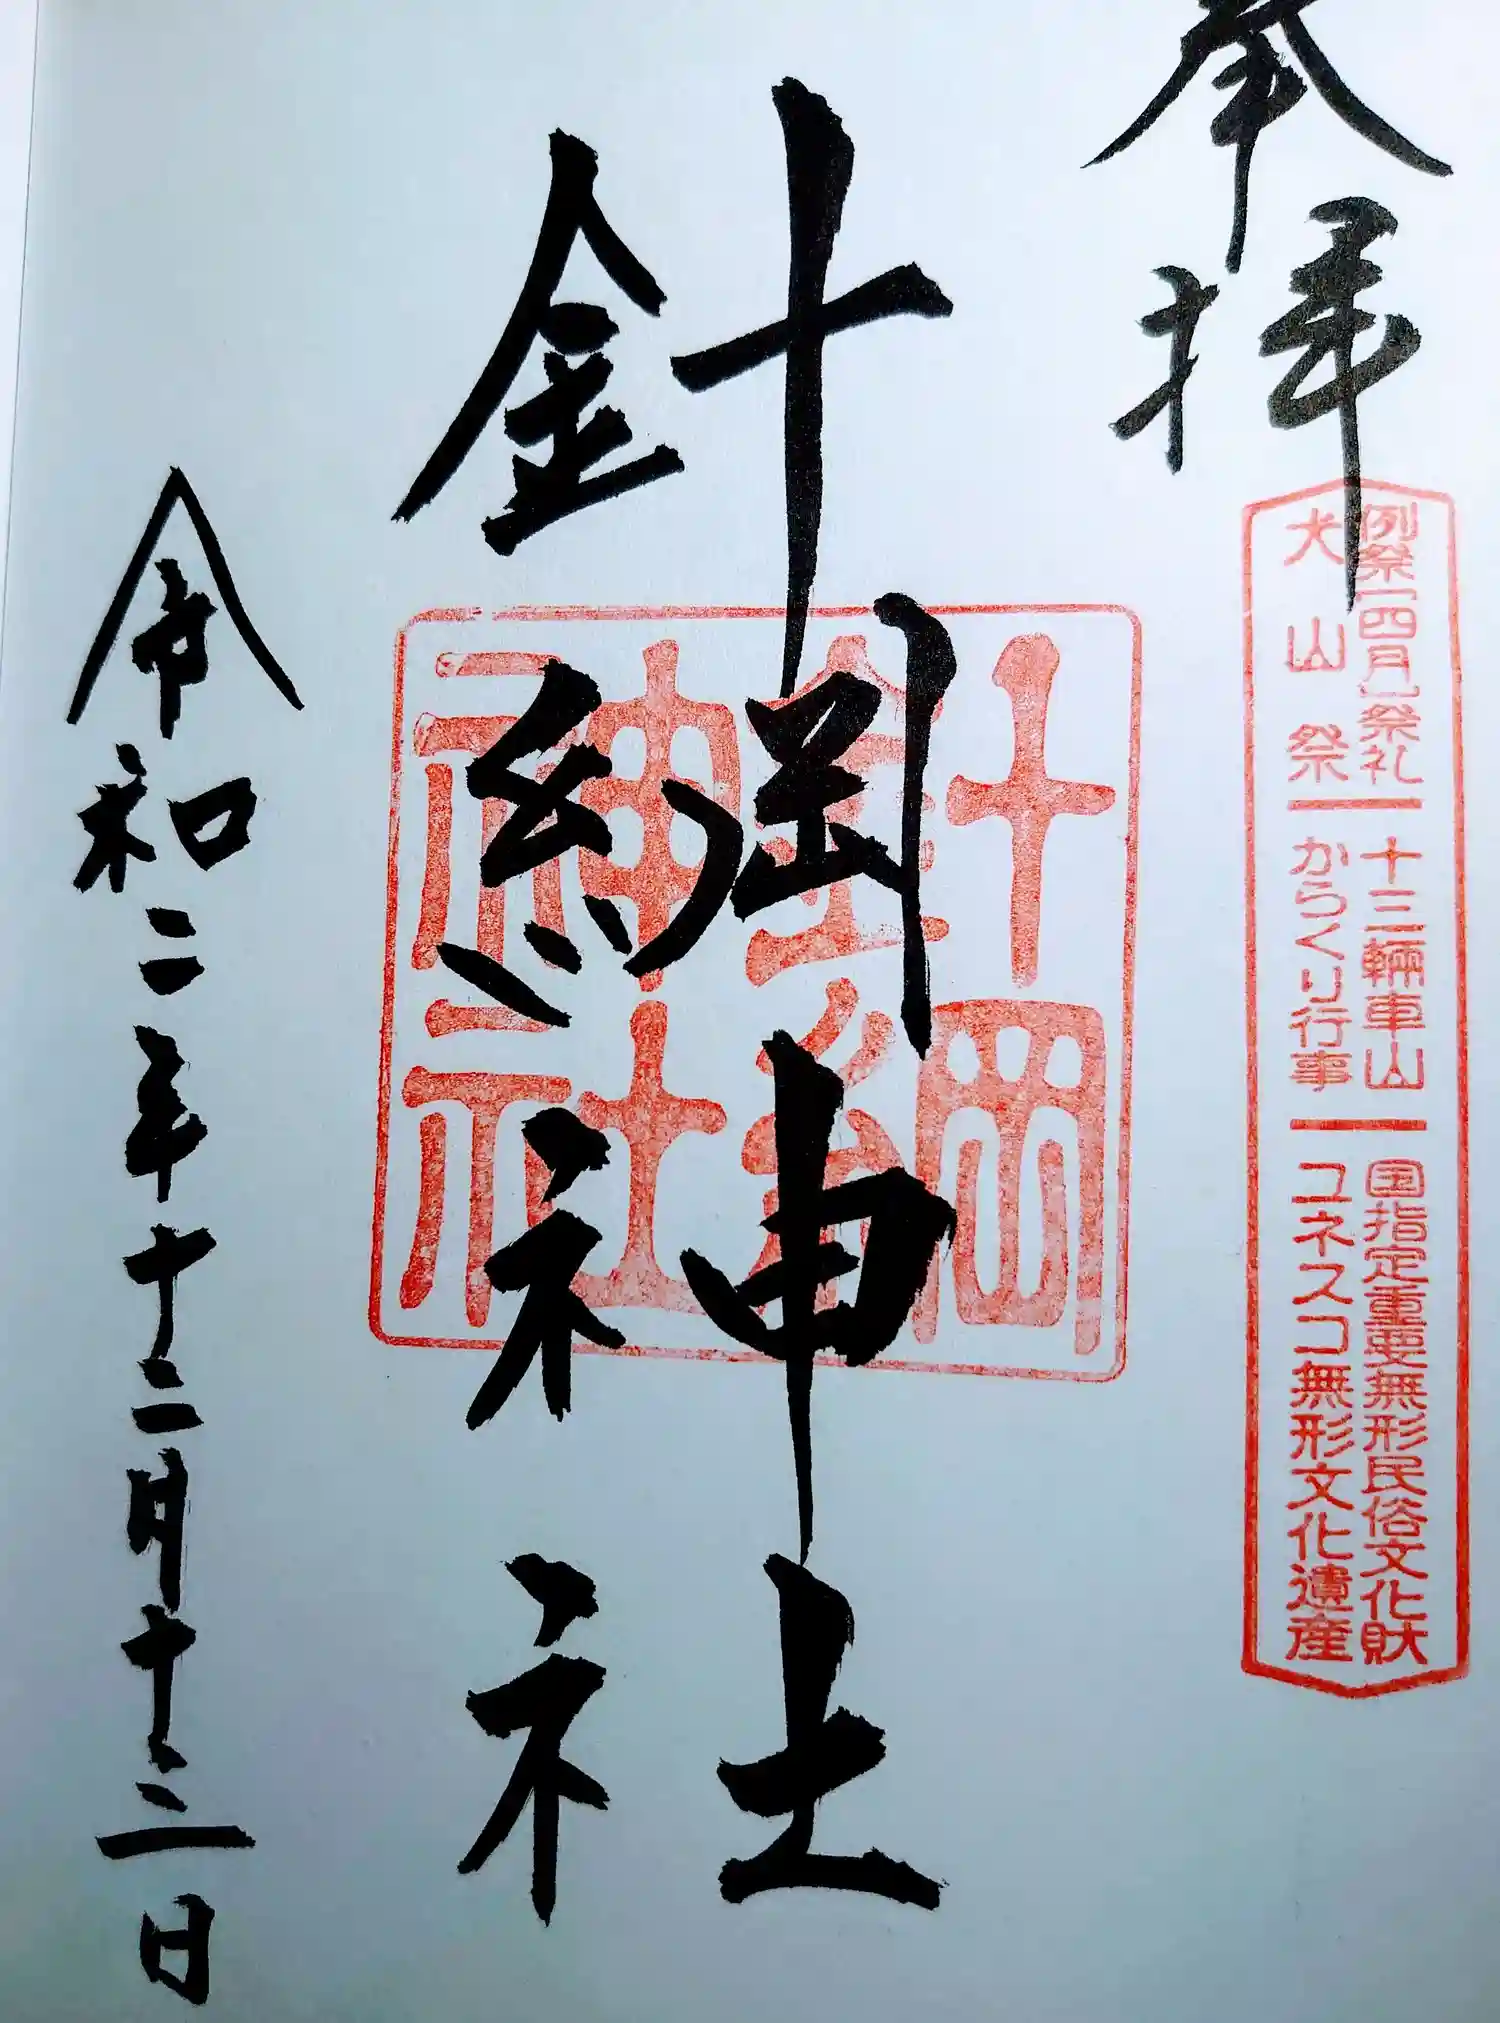 奉拝
例祭「四月」祭礼 十三輛車山 国指定重要無形民俗文化財
犬山祭 からくり行事 ユネスコ無形文化遺産
針綱神社
針綱
神社
令和二年十二月十三日